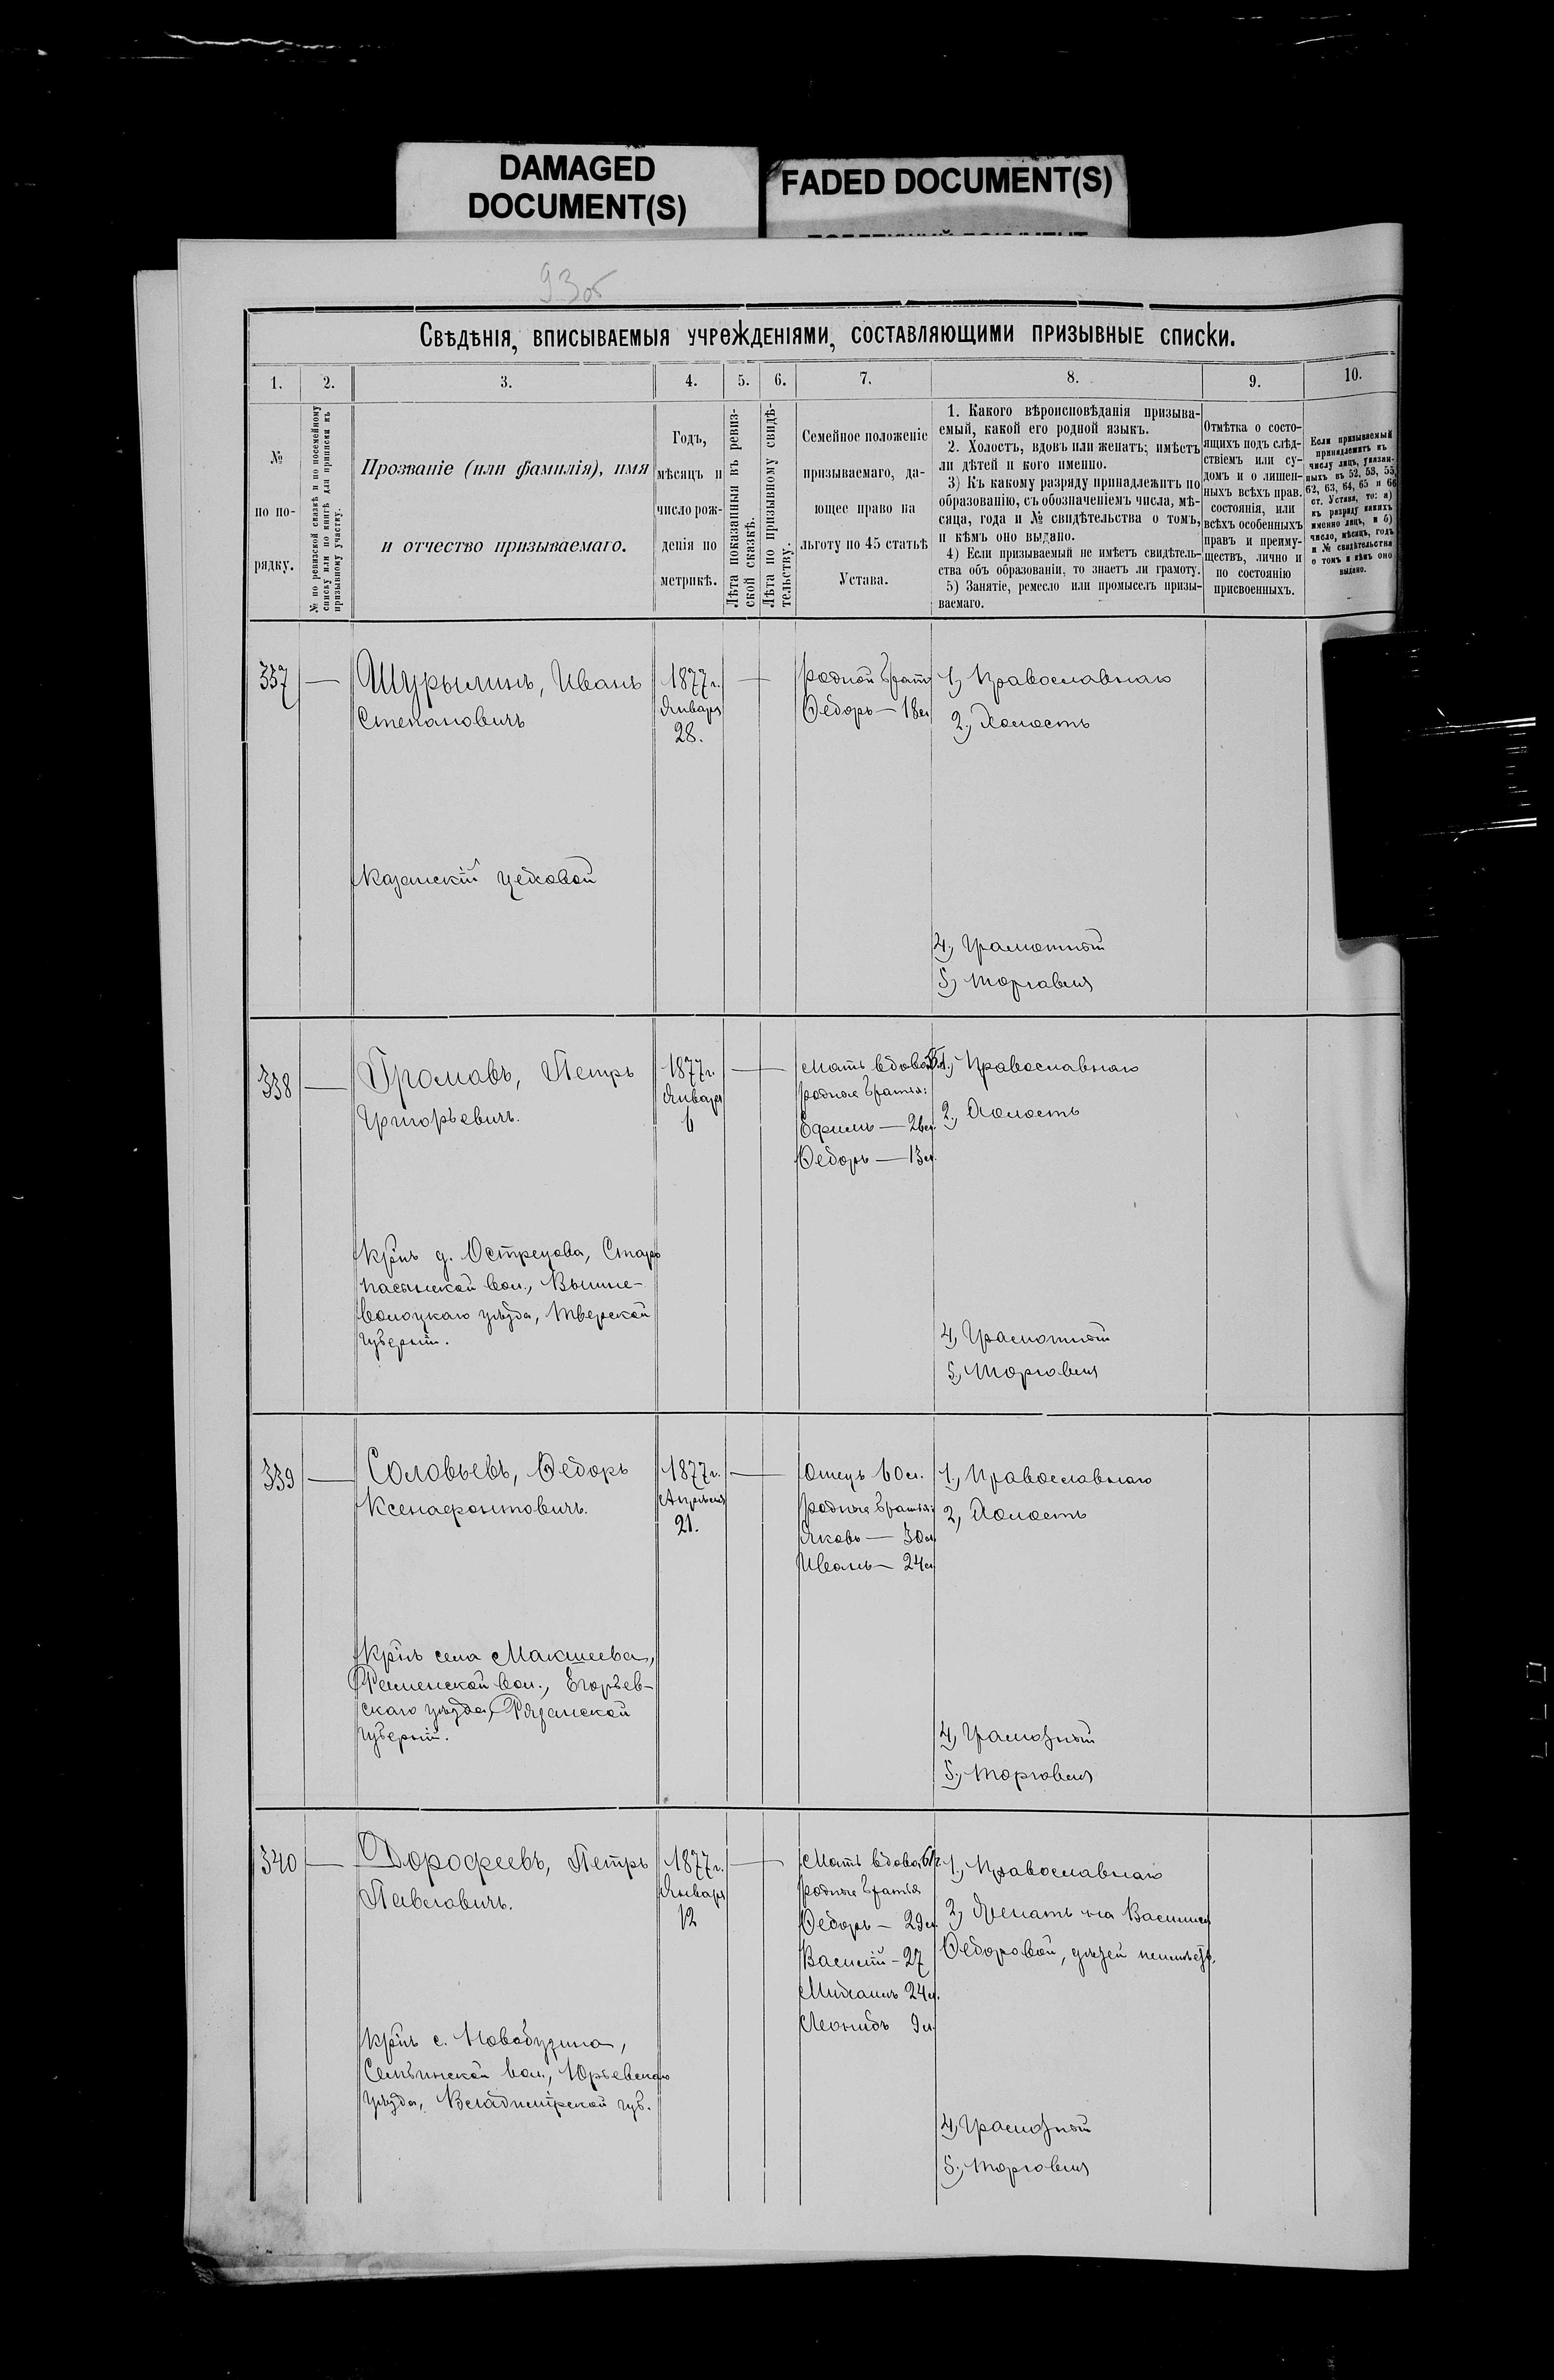 DAMAGED
DOCUMENT(S)
FADED DOCUMENT(S)
93 об
Свѣдѣнія, вписываемыя учрежденіями, составляющими призывные списки.
1.
2.
3.
4.
5.
6.
7.
8.
9.
10.
№
по по-
рядку.
№ по ревизской сказкѣ и по посемейному
списку или по книгѣ для приписки къ
призывному участку.
Прозваніе (или фамилія), имя
и отчество призываемаго.
Годъ,
мѣсяцъ и
число рож-
денія по
метрикѣ.
Лѣта показанныя въ ревиз-
ской сказкѣ.
Лѣта по призывному свидѣ-
тельству.
Семейное положеніе
призываемаго, да-
ющее право на
льготу по 45 статьѣ
Устава.
1. Какого вѣроисповѣданія призыва-
емый, какой его родной языкъ.
2. Холостъ, вдовъ или женатъ; имѣетъ
ли дѣтей и кого именно.
3) Къ какому разряду принадлежитъ по
образованію, съ обозначеніемъ числа, мѣ-
сяца, года и № свидѣтельства о томъ,
и кѣмъ оно выдано.
4) Если призываемый не имѣетъ свидѣтель-
ства объ образованіи, то знаетъ ли грамоту.
5) Занятіе, ремесло или промыселъ призы-
ваемаго.
Отмѣтка о состо-
ящихъ подъ слѣд-
ствіемъ или су-
домъ и о лишен-
ныхъ всѣхъ прав.
состоянія, или
всѣхъ особенныхъ
правъ и преиму-
ществъ, лично и
по состоянію
присвоенныхъ.
Если призываемый
принадлежитъ къ
числу лицъ, указан-
ныхъ въ 52, 53, 55,
62, 63, 64, 65 и 66
ст. Устава, то: а)
къ разряду какихъ
именно лицъ, и б)
число, мѣсяцъ, годъ
и № свидѣтельства
о томъ и кѣмъ оно
выдано.
337
Шурылинъ, Иванъ
Степановичъ
Казанскій цеховой
1877 г.
Января
28.
родной братъ
Ѳедоръ — 18 л
1, Православнаго
2, Холостъ
4, Грамотный
5, торговля
338
Громовъ, Петръ
Григорьевичъ.
Кр̃нъ д. Острецова, Старо
пасонской вол., Вышне-
волоцкаго уѣзда, Тверской
губерніи.
1877 г.
Января
6
Мать вдова
родные братья:
Ефимъ — 26 л.
Ѳедоръ — 13 л.
1, Православнаго
2, Холостъ
4, Грамотный
5, Торговля
339
Соловьевъ, Ѳедоръ
Ксенофонтовичъ.
Кр̃нъ села Макшеева,
Раменской вол., Егорьев-
скаго уѣзда, Рязанской
губерніи.
1877 г.
Апрѣля
21.
Отецъ 60 л.
родные братья:
Яковъ — 30 л
Иванъ — 24 л
1, Православнаго
2, Холостъ
4, Грамотный
5, Торговля
340
Дорофеевъ, Петръ
Павловичъ.
Кр̃нъ с. Новобузина,
Симьинской вол., Юрьевскаго
уѣзда, Владимірской губ.
1877 г.
Января
12
Мать вдова
родные братья
Ѳедоръ — 29 л
Василій — 27
Михаилъ 24 л.
Леонидъ 9 л.
1, Православнаго
2, Женатъ на
Ѳедоровой, дѣтей неимѣетъ.
4, Грамотный
5, Торговля